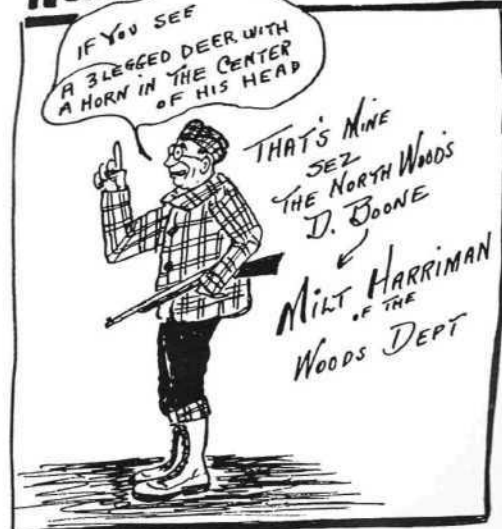 IF YOU SEE
A 3 LEGGED DEER WITH
A HORN IN THE CENTER
OF HIS HEAD
THAT'S MINE
SEZ
THE NORTH WOODS
D. BOONE
MILT HARRIMAN
OF THE
WOODS DEPT